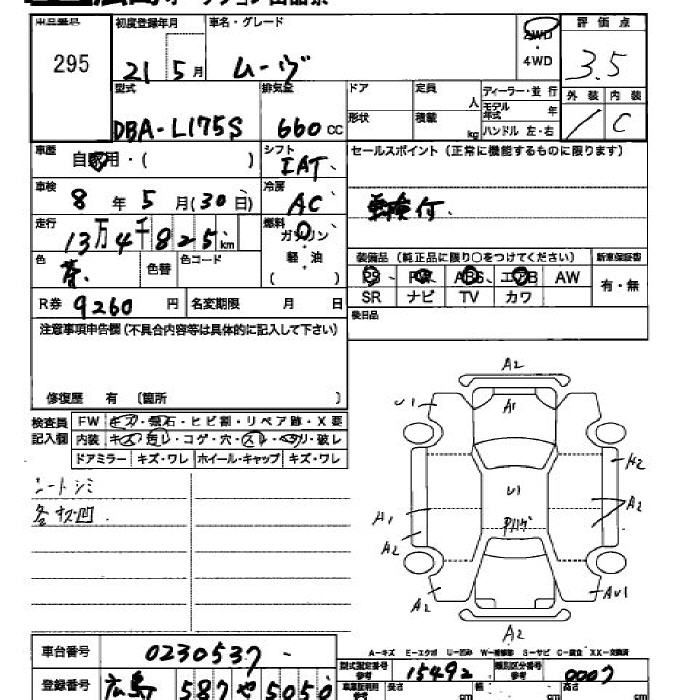 295
初度登録年月
車名・グレード
21 5月
ムーヴ
2WD
・
4WD
評価点
3.5
型式
DBA-L175S
排気量
660 cc
ドア
形状
定員
人
積載
kg
ディーラー・並行
モデル
年式 年
ハンドル 左・右
外装 内装
/ C
車歴
自家用・( )
シフト
IAT
セールスポイント(正常に機能するものに限ります)
車検付.
車検
8年5月(30日)
冷房
AC
走行
13万4千825km
燃料
ガソリン
・
軽・油
( )
色
茶.
色替
色コード
装備品(純正品に限り○をつけてください)
新車保証書
PS PW ABS エアB AW
SR ナビ TV カワ
有・無
R券 9260円
名変期限 月 日
後日品
注意事項申告欄(不具合内容等は具体的に記入して下さい)
修復歴 有 〔箇所 〕
検査員
記入欄
FW キズ・飛石・ヒビ割・リペア跡・X要
内装 キズ・コゲ・穴・スレ・破レ
ドアミラー キズ・ワレ ホイール・キャップ キズ・ワレ
シートシミ
A2
U1
A1
A2
U1
A2
A1
A2
A2
AU1
A2
A-キズ E-エクボ U-凹み W-補修跡 S-サビ C-腐食 XX-交換済
車台番号
0230537
型式指定番号
参考
15492
類別区分番号
参考
0007
登録番号
広島 587 や 5050
長さ
cm
幅
cm
高さ
cm